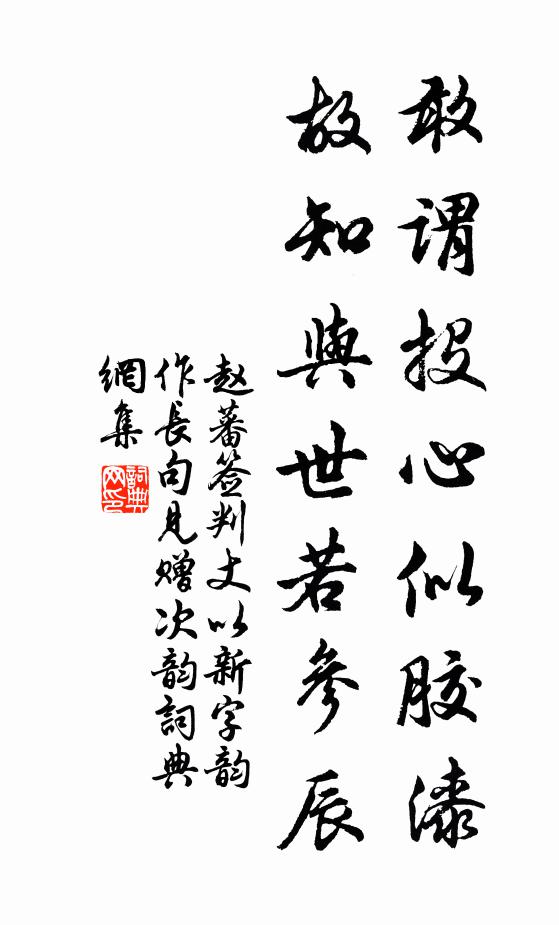 敢谓投心似胶漆
故知与世若参辰
赵蕃签判丈以新字韵
作长句见赠次韵词典
網集
詞典